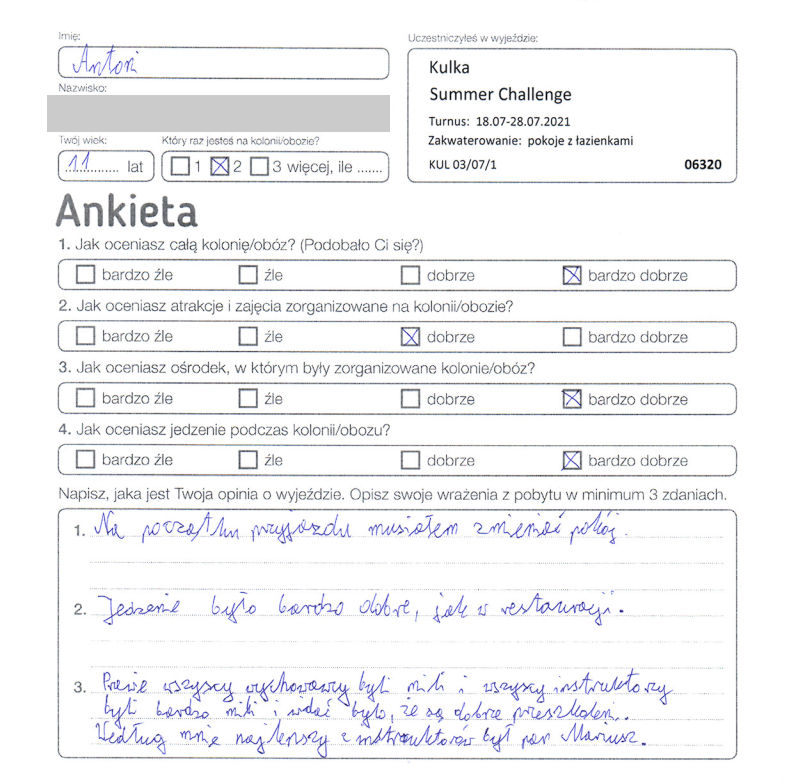 Imię:
Antoni
Nazwisko:
Twój wiek:
11 lat
Który raz jesteś na kolonii/obozie?
1 2 3 więcej, ile .......
Uczestniczyłeś w wyjeździe:
Kulka
Summer Challenge
Turnus: 18.07-28.07.2021
Zakwaterowanie: pokoje z łazienkami
KUL 03/07/1 06320
Ankieta
1. Jak oceniasz całą kolonię/obóz? (Podobało Ci się?)
bardzo źle źle dobrze bardzo dobrze
2. Jak oceniasz atrakcje i zajęcia zorganizowane na kolonii/obozie?
bardzo źle źle dobrze bardzo dobrze
3. Jak oceniasz ośrodek, w którym były zorganizowane kolonie/obóz?
bardzo źle źle dobrze bardzo dobrze
4. Jak oceniasz jedzenie podczas kolonii/obozu?
bardzo źle źle dobrze bardzo dobrze
Napisz, jaka jest Twoja opinia o wyjeździe. Opisz swoje wrażenia z pobytu w minimum 3 zdaniach.
1. Na początku przyjazdu musiałem zmieniać pokój.
2. Jedzenie było bardzo dobre, jak w restauracji.
3. Prawie wszyscy wychowawcy byli mili i wszyscy instruktorzy
byli bardzo mili i widać było, że są dobrze przeszkoleni.
Według mnie najlepszy z instruktorów był pan Mariusz.